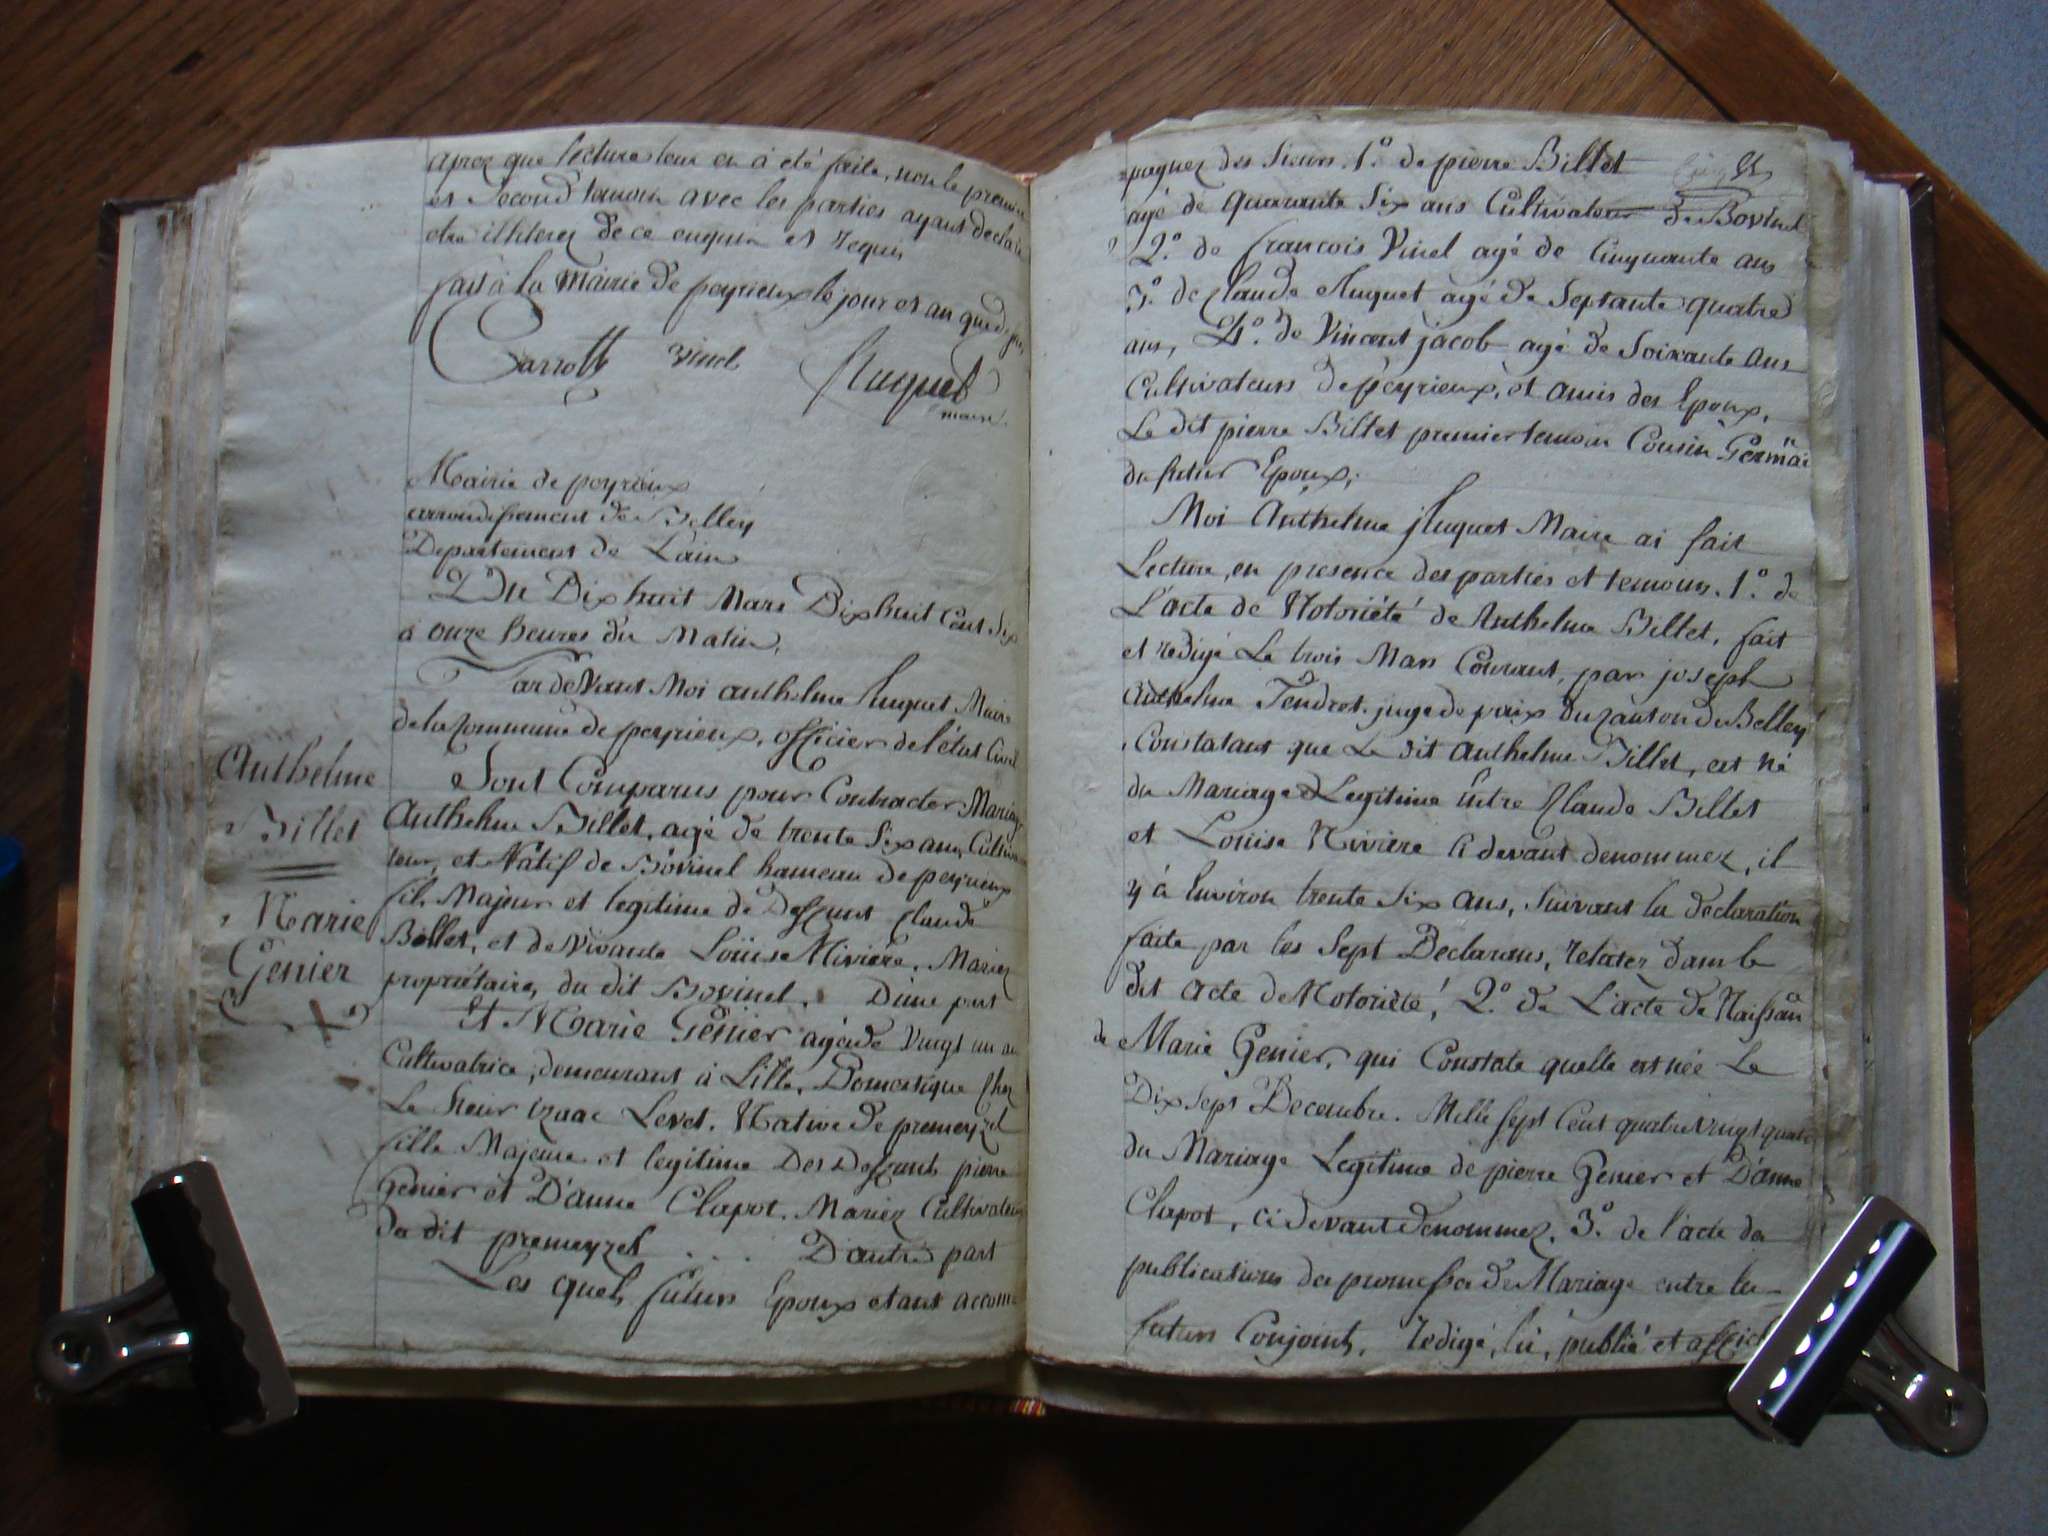 aprez que lecture leur en à été faite, non le premier
et Second temoin avec les parties ayant declaré
etre illiterez de ce enquis et requis
fait à la Mairie de peyrieux le jour et an que dessus
Carrott vinel Huguet
maire.
Mairie de peyrieux
arrondissement de Belley
Departement de L'ain
Du Dix huit Mars Dix huit Cent Six
à onze heures du Matin,
Par deVant Moi anthelme huguet Maire
de la Commune de peyrieux, officier de l'état Civil
Sont Comparus pour Contracter Mariage
Anthelme Billet, agé de trente Six ans, Cultiva
teur, et Natif de Bovinel hameau de peyrieux
fils Majeur et legitime de Deffunt Claude
Billet, et de Vivante Loüise Riviere, Mariez
propriétaires, du dit Bovinel. D'une part
Et Marie Genier agée de Vingt un an
Cultivatrice, demeurant à Lille, Domestique Chez
Le Sieur izaac Levet. Native de premeyzel
fille Majeure et legitime Des Deffunts pierre
Genier et D'anne Clapot. Mariez Cultivateurs
du dit premeyzel . . . D'autre part
Les quels futurs Epoux etant accom
Anthelme
Billet
Marie
Genier
pagnez des Sieurs. 1.º de pierre Billet
agé de quarante Six ans Cultivateur de Bovinel
2.º de francois Vinel agé de Cinquante ans
3.º de Claude Huguet agé de Septante quatre
ans, 4.º de Vincent jacob agé de Soixante ans
Cultivateurs de peyrieux, et amis des Epoux,
Le dit pierre Billet premier temoin Cousin Germain
du futur Epoux;
Moi Anthelme huguet Maire ai fait
Lecture, en presence des parties et temoins. 1.º de
L'acte de Notoriété de Anthelme Billet, fait
et redigé Le trois Mars Courant, par joseph
Anthelme Tendret juge de paix du Canton de Belley
Constatant que Le dit Anthelme Billet, est né
du Mariage Legitime Entre Claude Billet
et Louise Riviere Ci devant denommez, il
y à Environ trente Six ans, Suivant la declaration
faite par les Sept Declarans, relatez dans le
dit acte de Notoriété, 2.º de L'acte de Naissan
de Marie Genier, qui Constate quelle est née Le
Dix Sept Decembre. Mille Sept Cent quatre Vingt quatre
du Mariage Legitime de pierre Genier et D'anne
Clapot, ci devant denommez. 3.º de l'acte de
publications de promesse de Mariage entre les
futurs Conjoints, redigé, lu, publié et affiché